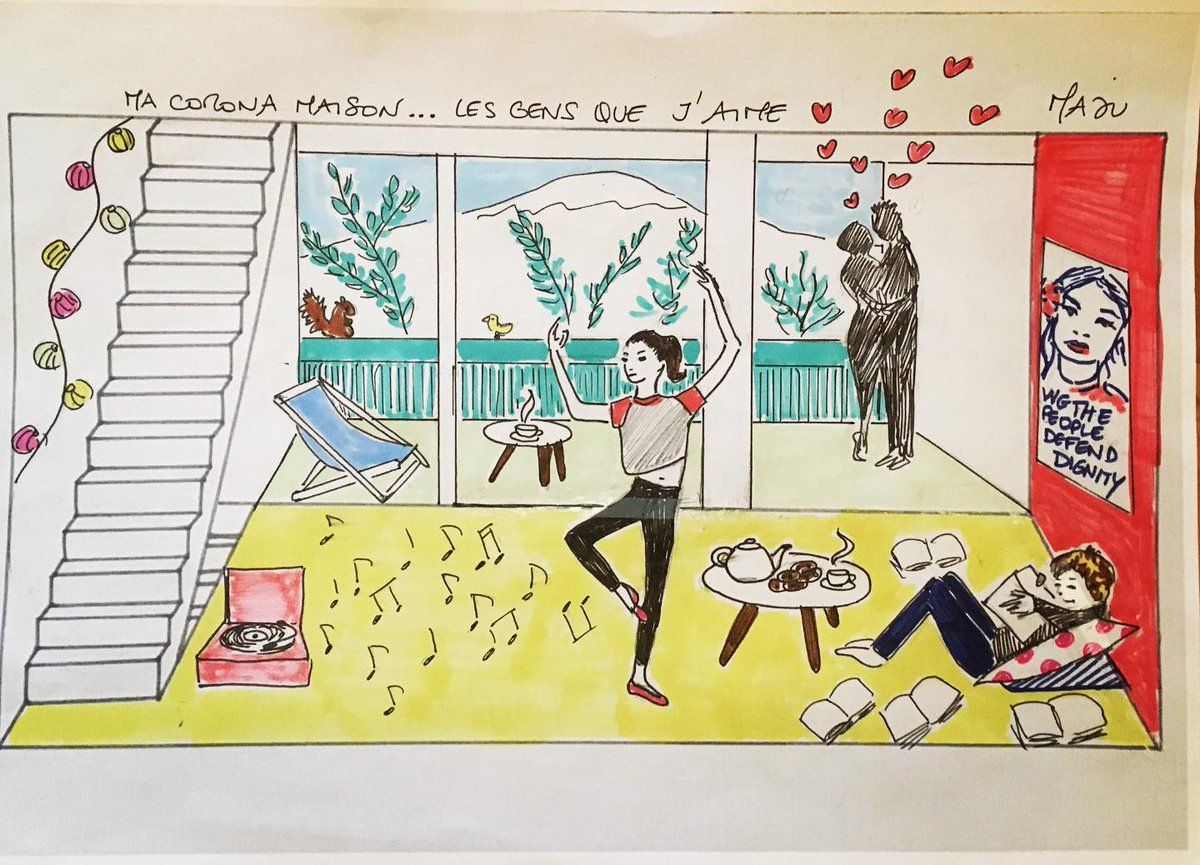 MA CORONA MAISON... LES GENS QUE J'AIME MAJU
WE THE
PEOPLE
DEFEND
DIGNITY